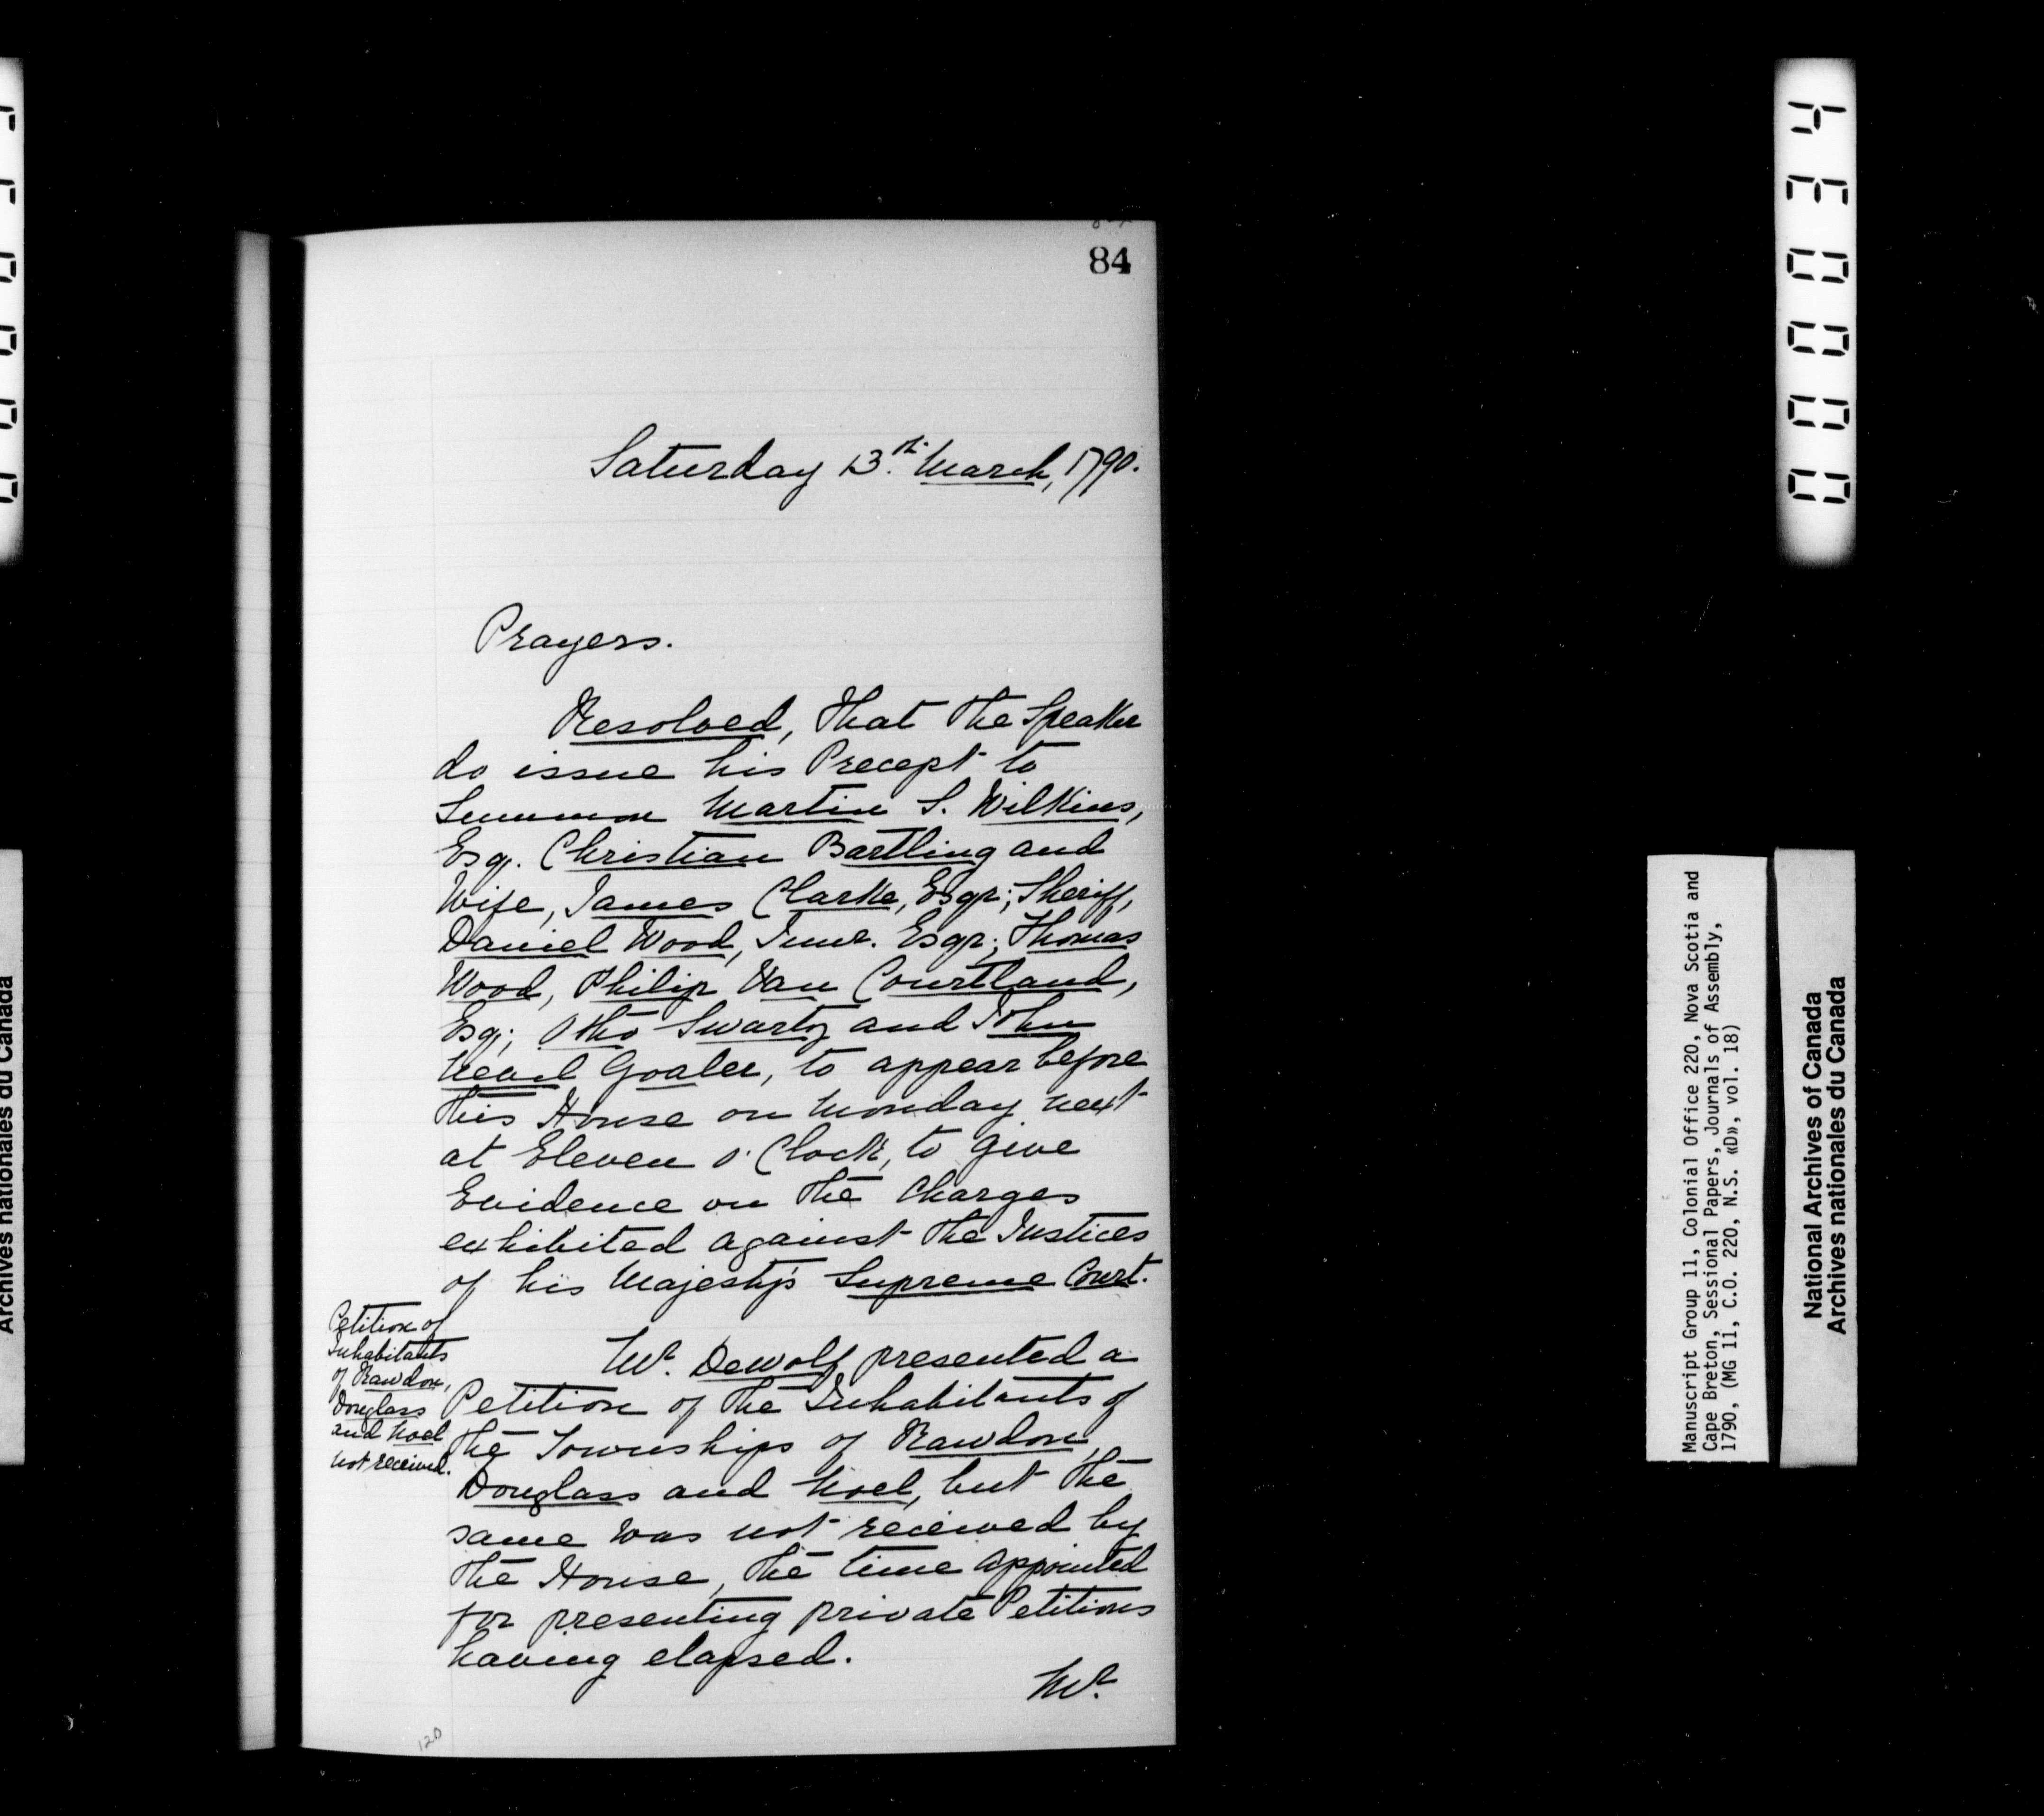 84
Saturday 13.th March, 1790.
Prayers.
Resolved, That the Speaker
do issue his Precept to
Summon Martin S. Wilkins,
Esq. Christian Bartling and
Wife, James Clarke, Esqr; Sheriff,
Daniel Wood, Junr. Esqr; Thomas
Wood, Philip Van Courtland,
Esq; Otho Swartz and John
Goaler, to appear before
this House on Monday next
at Eleven o'Clock, to give
Evidence on the Charges
exhibited against the Justices
of his Majesty's Supreme Court.
Petition of
Inhabitants
of Rawdon,
Douglass
and Noel
not received.
Mr. Dewolf presented a
Petition of the Inhabitants of
the Townships of Rawdon,
Douglass and Noel, but the
same was not received by
the House, the time appointed
for presenting private Petitions
having elapsed.
Mr.
120
Manuscript Group 11, Colonial Office 220, Nova Scotia and
Cape Breton, Sessional Papers, Journals of Assembly,
1790, (MG 11, C.O. 220, N.S. «D», vol. 18)
National Archives of Canada
Archives nationales du Canada
Archives nationales du Canada